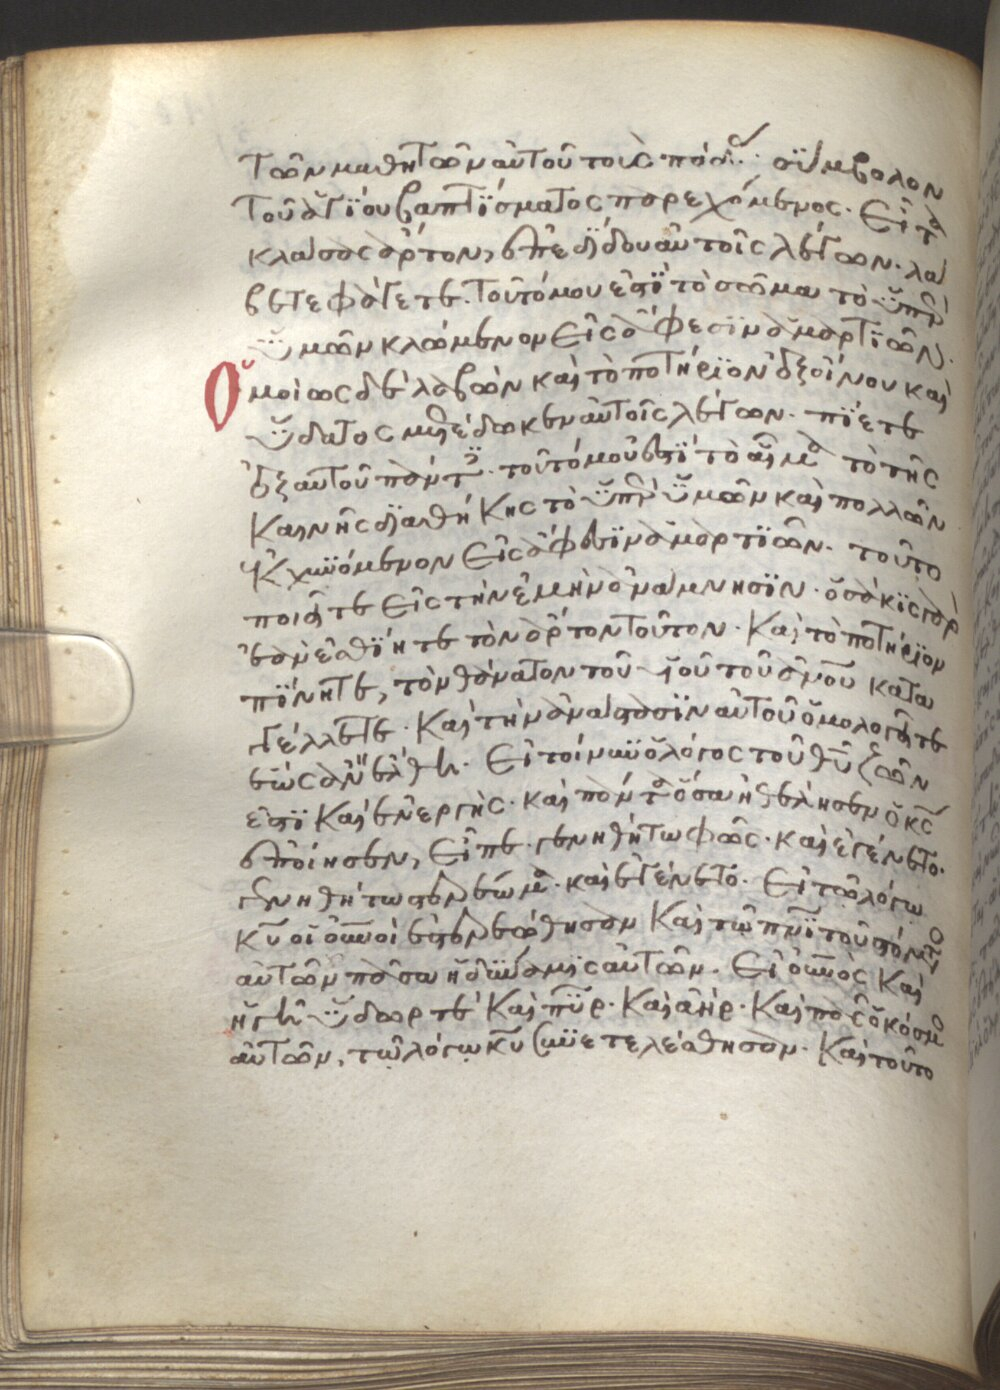 τῶν μαθητῶν αὐτοῦ τοὺς πόδ(ας)· σύμβολον
τοῦ ἁγΐου βαπτΐσματος παρεχόμενος. Εἶτα
κλάσας ἄρτον, ἐπεδΐδου αὐτοῖς λέγων· λά
βετε φάγετε. τοῦτό μου ἐστὶ τὸ σῶμα τὸ ὑπὲρ
ὑμῶν κλώμενον εἰς ἄφεσϊν ἁμαρτϊῶν.
Ὁμοίως δὲ λαβὼν καὶ τὸ ποτήρϊον ἐξ οἴνου καὶ
ὕδατος μετέδωκεν αὐτοῖς λέγων· πΐετε
ἐξ αὐτοῦ πάντες. τοῦτό μου ἐστὶ τὸ αἷμα τὸ τῆς
καινῆς δϊαθήκης τὸ ὑπὲρ ὑμῶν καὶ πολλῶν
ἐκχυνόμενον εἰς ἄφεσϊν ἁμαρτϊῶν. τοῦτο
ποιεῖτε εἰς τὴν ἐμὴν ἀνάμνησϊν. ὁσάκϊς γὰρ
ἐὰν ἐσθΐητε τὸν ἄρτον τοῦτον. καὶ τὸ ποτήρϊον
πΐνητε, τὸν θάνατον τοῦ υἱοῦ τοῦ ἀνου κατα
γέλλετε. καὶ τὴν ἀνάστασϊν αὐτοῦ ὁμολογεῖτε
ἕως ἂν ἔλθη. Εἰ τοίνυν ὁ λόγος τοῦ θυ ζῶν
ἐστϊ καὶ ἐνεργής. καὶ πάντα ὅσα ἠθέλησεν ὁ κς
ἐποίησεν, εἶπε. γενηθήτω φῶς. καὶ ἐγένετο.
γενηθήτω στερέωμα. καὶ ἐγένετο. Εἰ τῷ λόγω
κυ οἱ οὐνοὶ ἐστερεώθησαν καὶ τῷ πνϊ τοῦ στόματος
αὐτῶν πᾶσα ἡ δύναμϊς αὐτῶν. Εἰ ὁ οὐνὸς καὶ
ἡ γῆ ὕδωρ τὲ καὶ πῦρ. καὶ ἀήρ. καὶ πᾶς ὁ κόσμος
αὐτῶν, τῷ λόγω κυ συνετελέσθησαν. καὶ τοῦτο